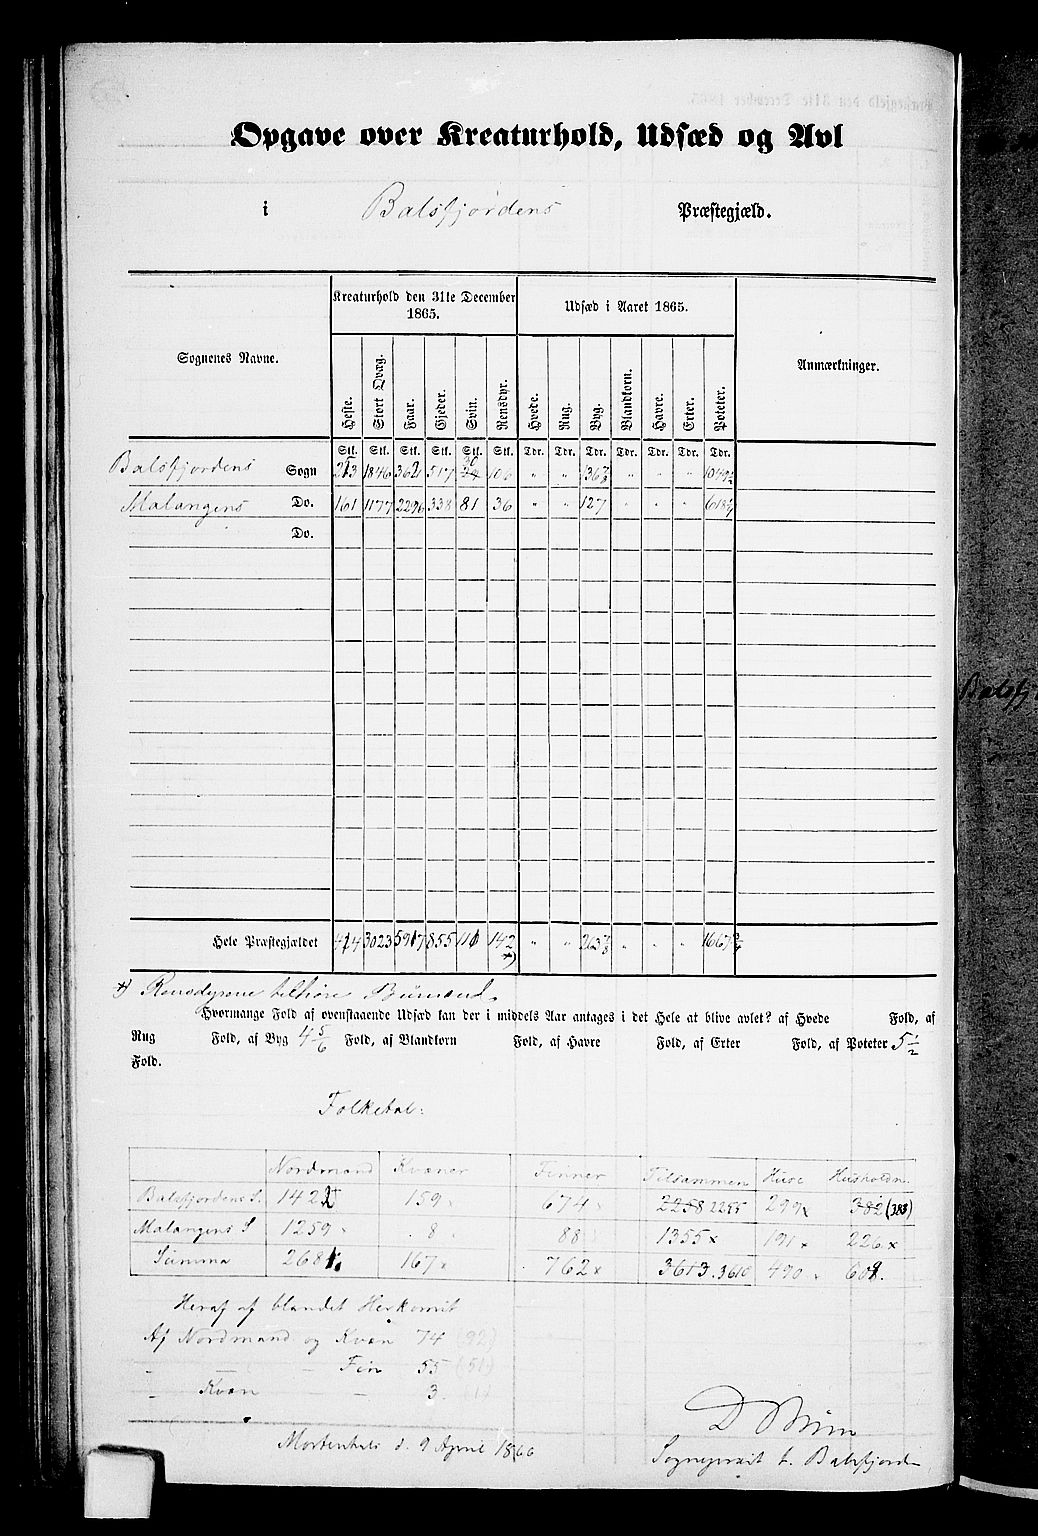 Opgave over Kreaturhold, Udsæd og Avl
i Balsfjordens Præstegjæld.
Sognenes Navne. Kreaturhold den 31te December 1865. Udsæd i Aaret 1865. Anmærkninger.
Heste. Stort Qvæg. Faar. Gjeder. Svin. Rensdyr. Hvede. Rug. Byg. Blandkorn. Havre. Erter. Poteter.
Stk. Stk. Stk. Stk. Stk. Stk. Tdr. Tdr. Tdr. Tdr. Tdr. Tdr. Tdr.
Balsfjordens Sogn 1846 3621 517 106 " " " " "
Malangens Do. 161 1177 2296 338 81 36 " " 127 " " "
Do.
Hele Præstegjældet 3023 5917 855 142 " " 263⅞ " " " 1667¾
*)
*) Rensdyrene tilhøre Bumænd.
Hvormange Fold af ovenstaaende Udsæd kan der i middels Aar antages i det Hele at blive avlet? af Hvede Fold, af
Rug Fold, af Byg 4 5/6 Fold, af Blandkorn Fold, af Havre Fold, af Erter Fold, af Poteter 5 1/2
Fold.
Folketal:
Nordmænd Kvæner Finner Tilsammen Huse Husholdn.
Balsfjordens S. 1422 159 674 x 2258 2255 299 x 382 (383)
Malangens S 1259 8 88 1355 x 191 x 226 x
Summa 2681. 167 x 762 x 3613. 3610 490 609.
Heraf af blandet Herkomst
Af Nordmænd og Kvæn 74 (92)
" — — Fin 55 (51)
" Kvæn — 3. (1)
Mortenhals d. 9 April 1866
Sogneprest t. Balsfjorden